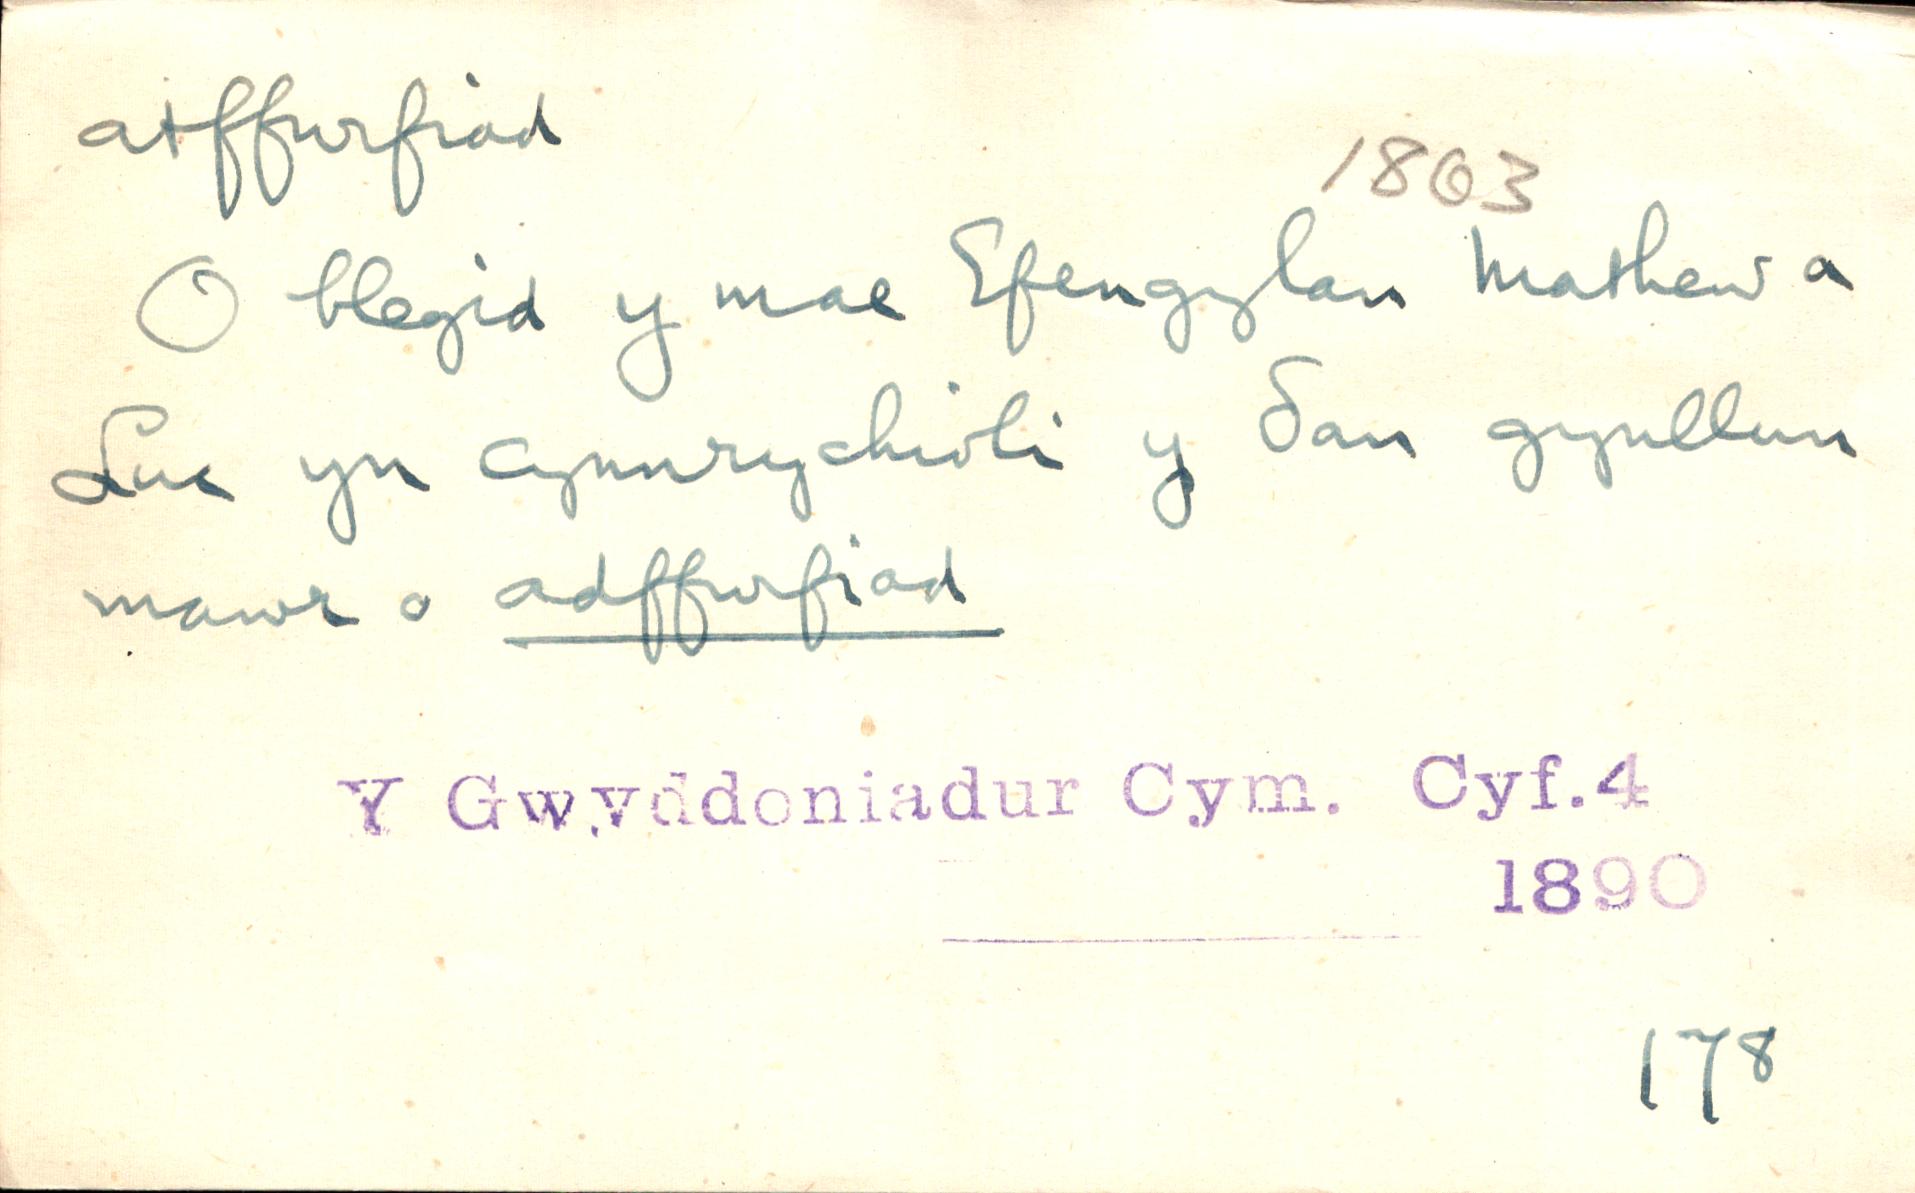 atffurfiad
1863
O blegid y mae Efengylau Mathew a
Luc yn cynnrychioli y ddau gynllun
mawr o adffurfiad
Y Gwyddoniadur Cym. Cyf.4
1890
178